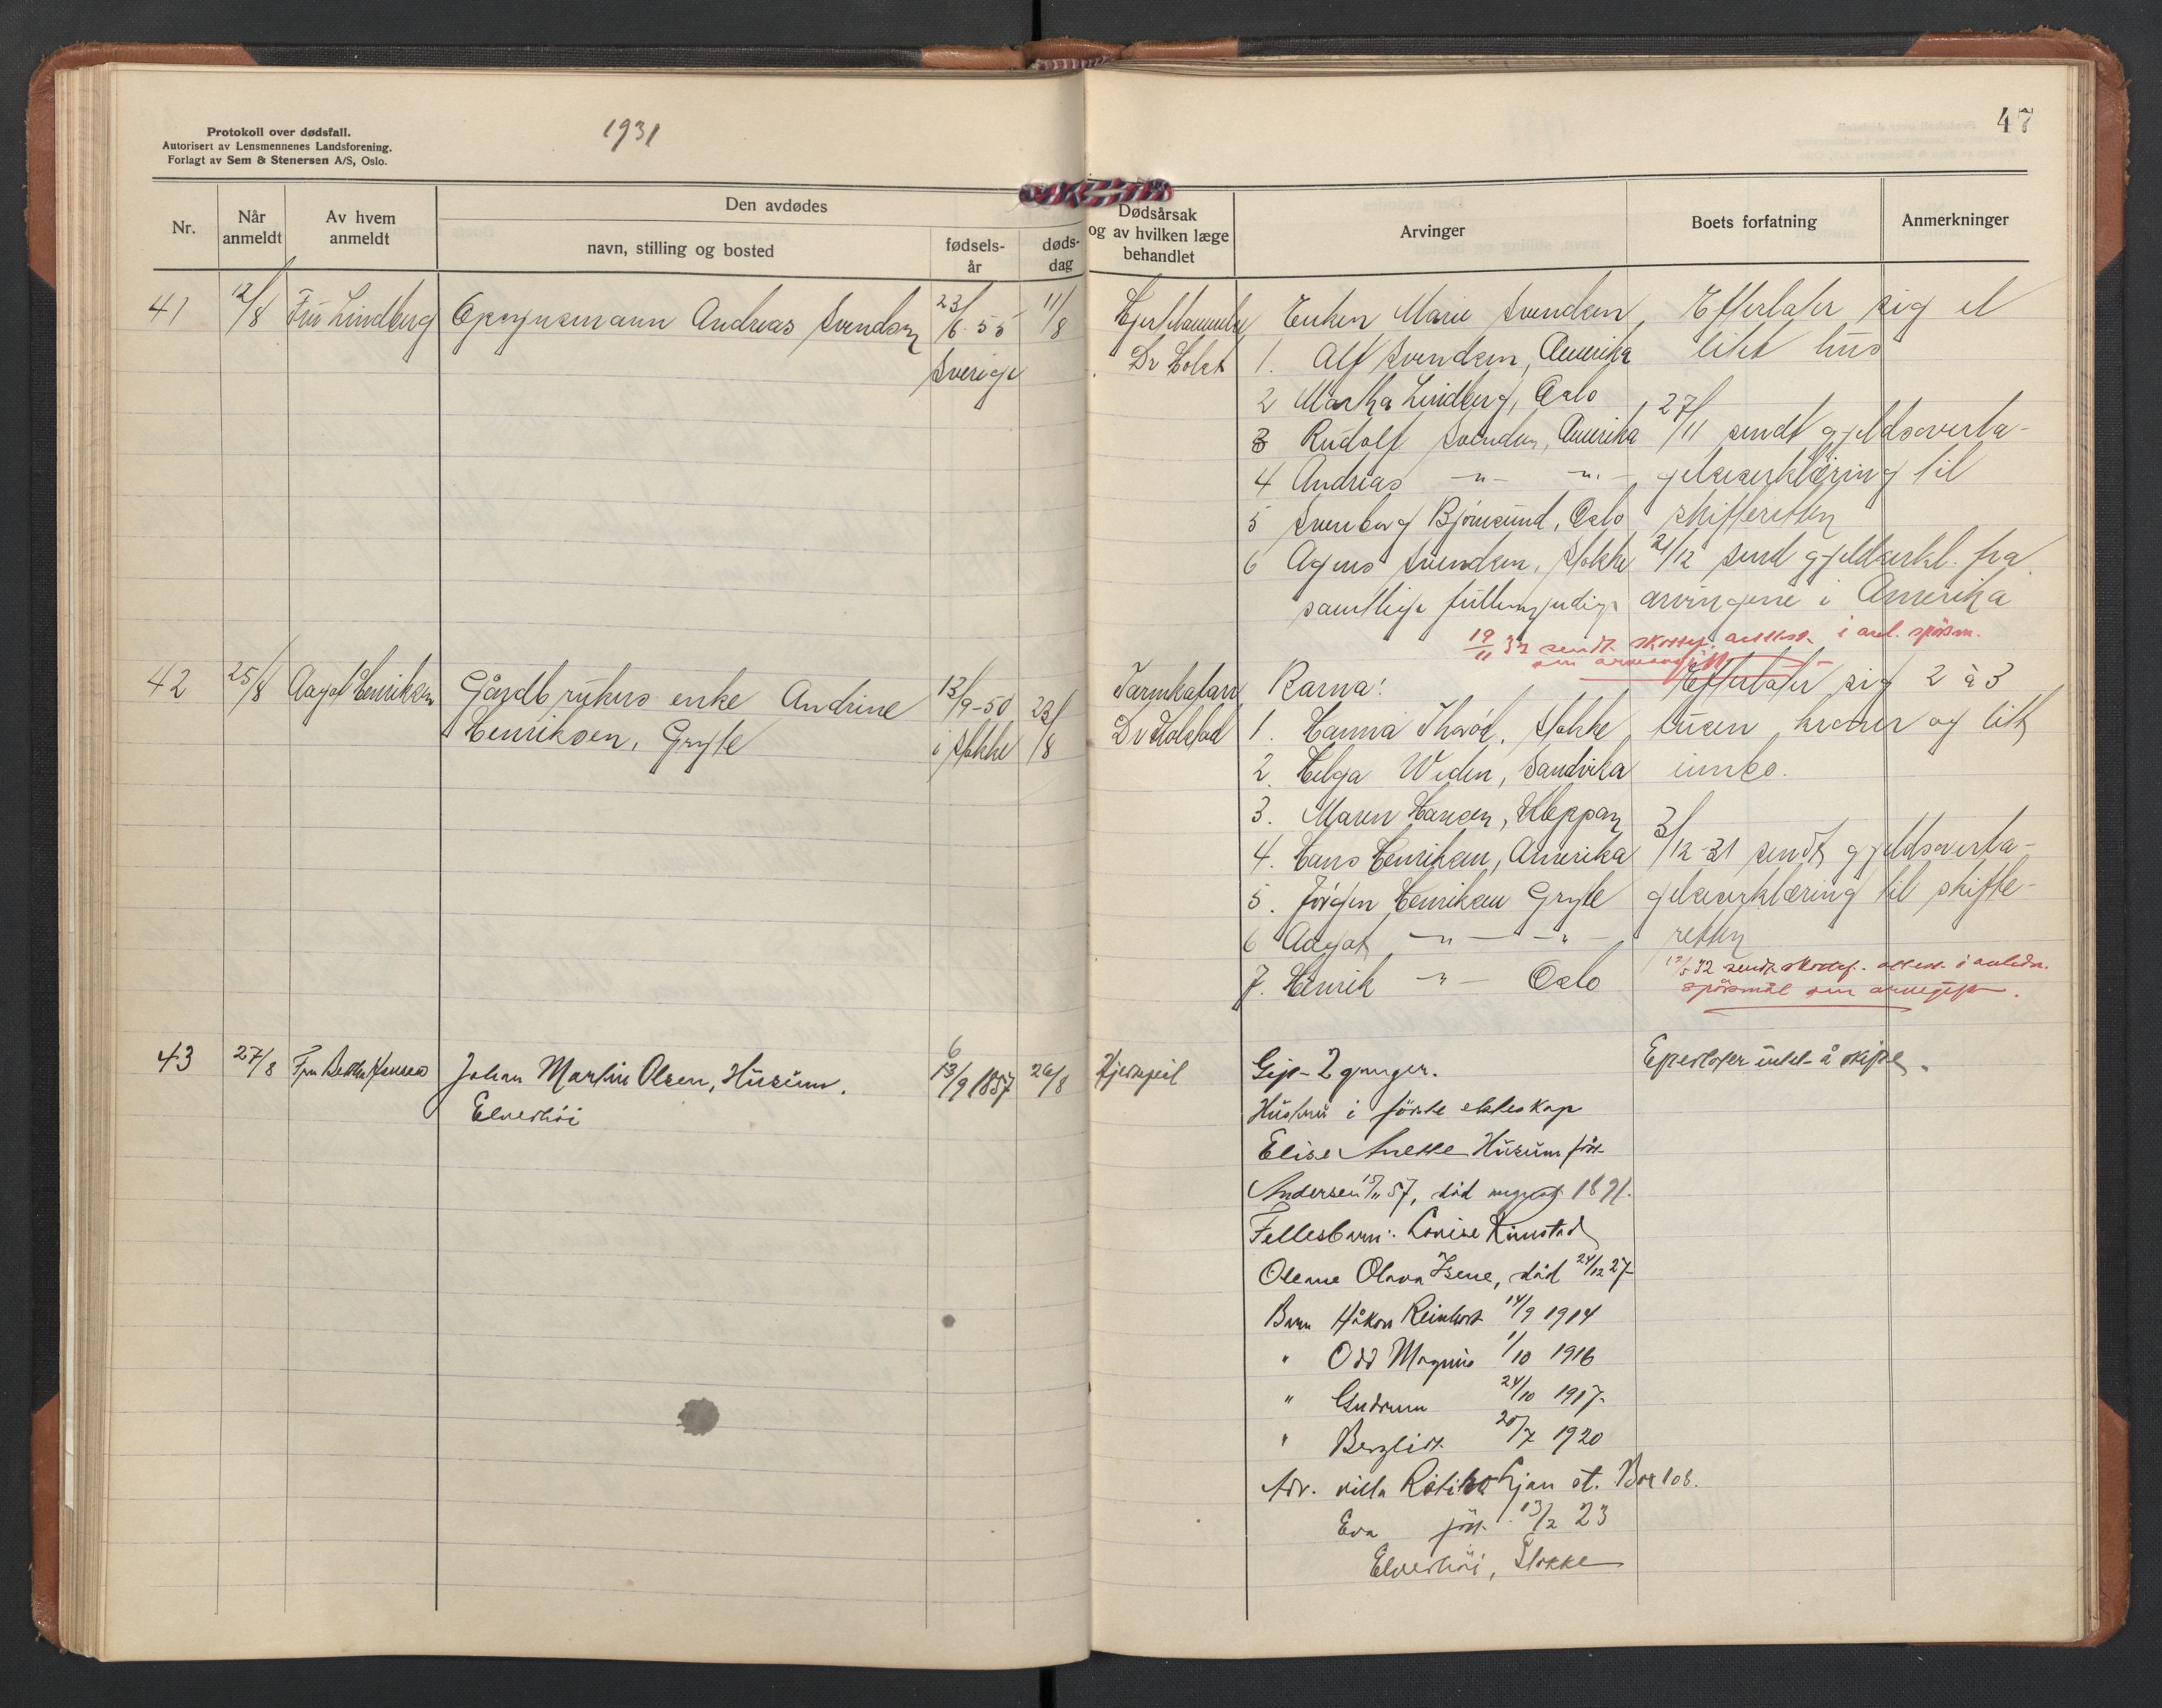 Protokoll over dødsfall.
Autorisert av Lensmennenes Landsforening.
Forlagt av Sem & Stenersen A/S, Oslo.
1931
47
Nr.
Når anmeldt
Av hvem anmeldt
Den avdødes
navn, stilling og bosted
fødsels-år
døds-dag
Dødsårsak og av hvilken læge behandlet
Arvinger
Boets forfatning
Anmerkninger
41 12/8 Fru Lindberg Opsynsmann Andreas Svendsen 23/6-55 11/8
Sverige
Dr Holst
Enken Marie Svendsen
1. Alf Svendsen, Amerika
2 Martha Lindberg, Oslo
3 Rudolf Svendsen, Amerika
4 Andreas -"- -"-
5 Svenborg Björnsund, Oslo
6 Agnes Svendsen, Stokke
samtlige fullmyndige
Efterlater sig et
litet hus
27/11 sendt gjeldsoverta-
gelseserklæring til
skifteretten
21/12 send gjeldserkl. fra
arvingene i Amerika
19/11 32 sendt skattef. attest. i anl. spörsm.
om arveavgift
42 25/8 Aagot Henriksen Gårdbrukers enke Andrine 13/9-50 23/8
Henriksen, Gryte i Stokke
Tarmkatarr
Dr Holstad
Barna:
1. Hanna Thorød, Stokke
2. Helga Widen, Sandvika
3. Maren Hansen, Kleppan
4. Hans Henriksen, Amerika
5. Jörgen Henriksen Gryte
6 Aagot -"- -"-
7. Henrik -"- Oslo
Efterlater sig 2 à 3
tusen kroner og litt
innbo.
3/12-31 sendt gjeldsoverta-
gelseserklæring til skifte-
retten
32 sendt skattef. attest i anledn.
spörsmål om arveavgift.
43 27/8 Fru Hansen Johan Martin Olsen, Husum. 6 13/9 1857 26/8
Elverhöi
Hjertefeil
Gift 2 ganger.
Hustru i förste ekteskap
Elise Anette Husum födt
Andersen 15/11 57, död august 1891.
Fellesbarn: Lovise Rimstad
Oleane Olava Isene, död 24/12 27-
Barn Håkon Reinhart 14/9 1914
" Odd Magnus 1/10 1916
" Gudrun 24/10 1917-
" Bergliot 20/7 1920
Adr. villa Ljan st. Box 108.
Eva föt. 13/2 23
Elverhöi, Stokke
Efterlater intet å skifte.